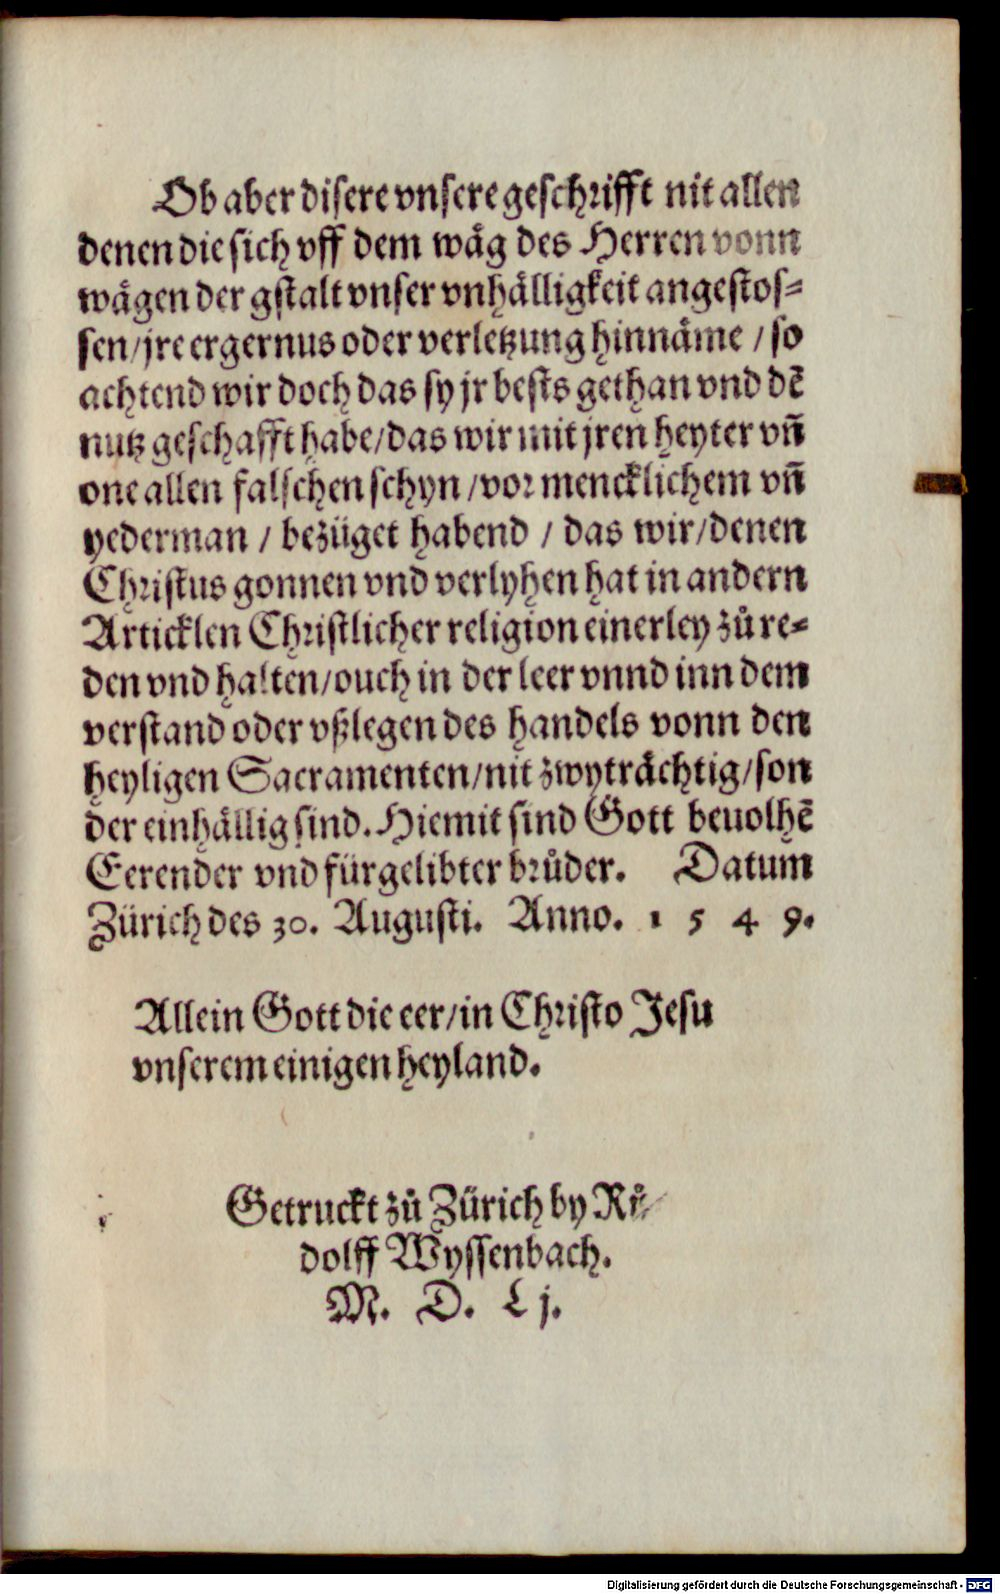 Ob aber disere vnsere geschrifft nit allen
denen die sich vff dem wäg des Herren vonn
wägen der gstalt vnser vnhälligkeit angestos-
sen/ jre ergernus oder verletzung hinnäme / so
achtend wir doch das sy jr bests gethan vnd dē
nutz geschafft habe/ das wir mit jren heyter vn̄
one allen falschen schyn / vor mencklichem vn̄
yederman / bezüget habend / das wir/ denen
Christus gonnen vnd verlyhen hat in andern
Articklen Christlicher religion einerley zů re-
den vnd halten/ ouch in der leer vnnd inn dem
verstand oder vßlegen des handels vonn den
heyligen Sacramenten/ nit zwyträchtig/ son
der einhällig sind. Hiemit sind Gott beuolhē
Eerender vnd fürgelibter brůder. Datum
Zürich des 30. Augusti. Anno. 1 5 4 9.
Allein Gott die eer/ in Christo Jesu
vnserem einigen heyland.
Getruckt zů Zürich by Rů-
dolff Wyssenbach.
M. D. L j.
Digitalisierung gefördert durch die Deutsche Forschungsgemeinschaft - DFG